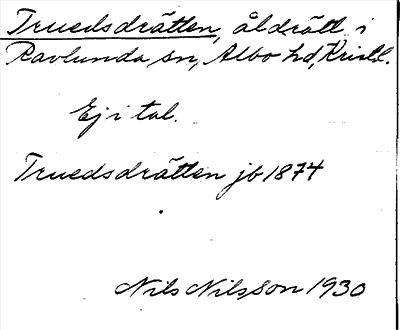 Truedsdrätten, åldrätt i
Ravlunda sn, Albo hd, Kristl.
Ej i tal.
Truedsdrätten jb 1874
Nils Nilsson 1930